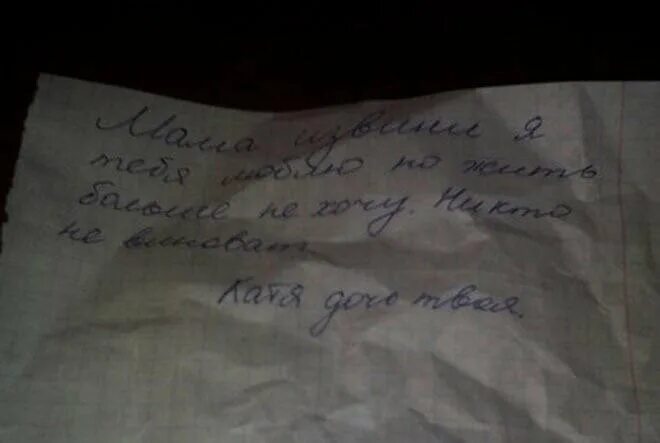 Мама извини я
тебя люблю но жить
больше не хочу. Никто
не виноват
Катя дочь твоя.